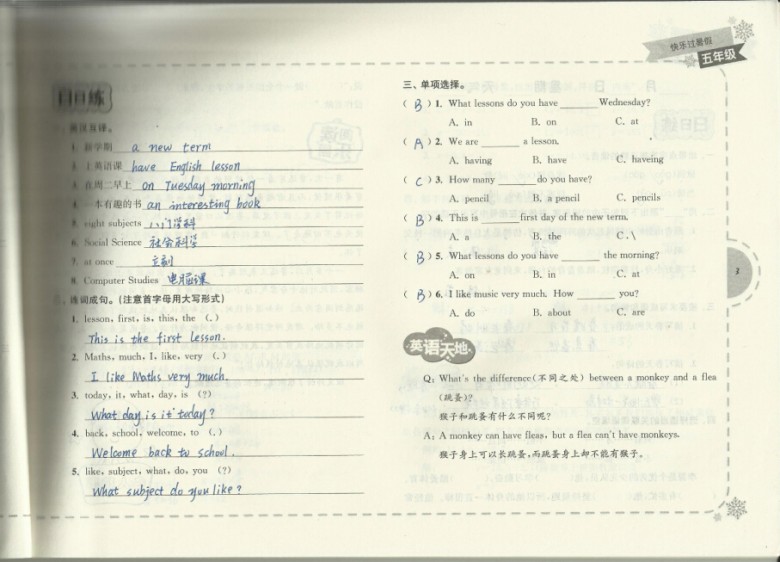 快乐过暑假
五年级
日日练
1. 新学期 a new term
2. 上英语课 have English lesson
3. 在周二早上 on Tuesday morning
4. 一本有趣的书 an interesting book
5. eight subjects 八门学科
6. Social Science 社会科学
7. at once 立刻
8. Computer Studies 电脑课
连词成句。(注意首字母用大写形式)
1. lesson, first, is, this, the (.)
This is the first lesson.
2. Maths, much, I, like, very (.)
I like Maths very much.
3. today, it, what, day, is (?)
What day is it today?
4. back, school, welcome, to (.)
Welcome back to school.
5. like, subject, what, do, you (?)
What subject do you like?
三、单项选择。
( B ) 1. What lessons do you have ______ Wednesday?
A. in B. on C. at
( A ) 2. We are ______ a lesson.
A. having B. have C. haveing
( C ) 3. How many ______ do you have?
A. pencil B. a pencil C. pencils
( B ) 4. This is ______ first day of the new term.
A. a B. the C. \
( B ) 5. What lessons do you have ______ the morning?
A. on B. in C. at
( B ) 6. I like music very much. How ______ you?
A. do B. about C. are
英语天地
Q: What's the difference(不同之处) between a monkey and a flea
(跳蚤)?
猴子和跳蚤有什么不同呢?
A: A monkey can have fleas, but a flea can't have monkeys.
猴子身上可以长跳蚤,而跳蚤身上却不能有猴子。
3